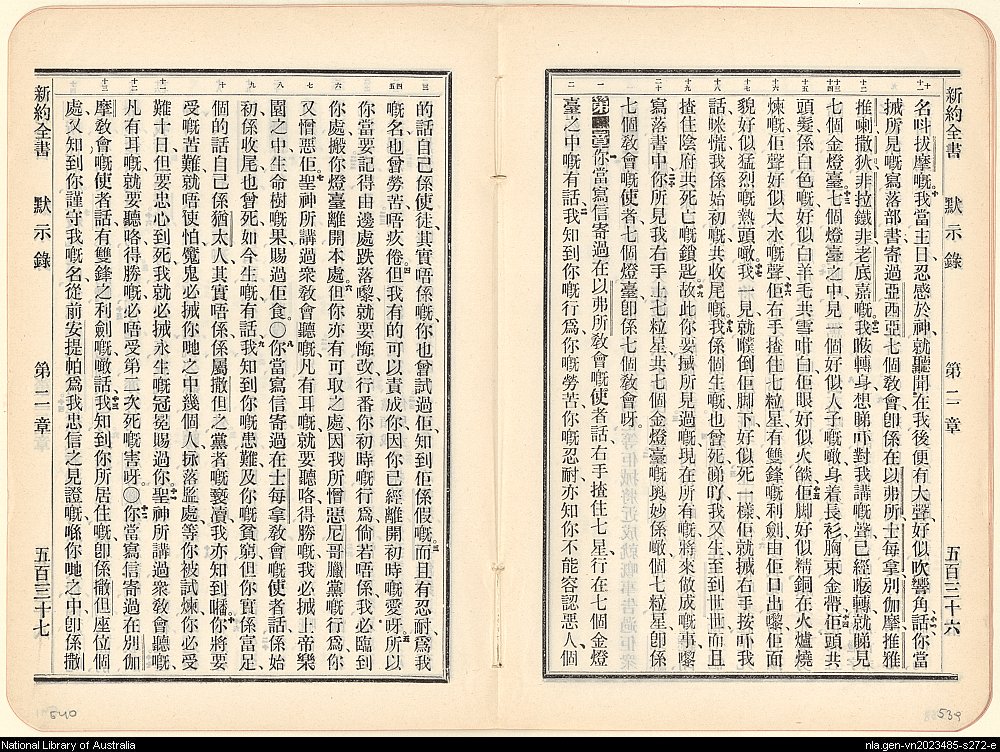 新約全書 默示錄 第二章 五百三十六
名呌拔摩嘅我當主日忍感於神就聽聞在我後便有大聲好似吹響角話你當
搣所見嘅寫落部書寄過亞西亞七個敎會卽係在以弗所士每拿別伽摩推雅
推喇撒狄非拉鐵非老底嘉嘅我𠵱轉身想睇吓對我講嘅聲已經𠵱轉就睇見
七個金燈臺七個燈臺之中見一個好似人子嘅噉身着長衫胸束金帶佢頭共
頭髮係白色嘅好似白羊毛共雪咁白佢眼好似火燄佢脚好似精銅在火爐燒
煉嘅佢聲好似大水嘅聲佢右手揸住七粒星有雙鋒嘅利劍由佢口出嚟佢面
貌好似猛烈嘅熱頭噉我一見就㒒倒佢脚下好似死一樣佢就搣右手按吓我
話咪慌我係始初嘅共收尾嘅我係個生嘅也曾死睇吖我又生至到世世而且
揸住陰府共死亡嘅鎖匙故此你要搣所見過嘅現在所有嘅將來做成嘅事嚟
寫落書中你所見我右手上七粒星共七個金燈臺嘅奧妙係噉個七粒星卽係
七個敎會嘅使者七個燈臺卽係七個敎會呀
第二章你當寫信寄過在以弗所敎會嘅使者話右手揸住七星行在七個金燈
臺之中嘅有話我知到你嘅行爲你嘅勞苦你嘅忍耐亦知你不能容認惡人個
的話自己係使徒其實唔係嘅你也曾試過佢知到佢係假嘅而且有忍耐爲我
嘅名也曾勞苦唔疚倦但我有的可以責成你因你已經離開初時嘅愛呀所以
你當要記得由邊處跌落嚟就要悔改行番你初時嘅行爲倘若唔係我必臨到
你處搬你燈臺離開本處但你亦有可取之處因我所憎惡尼哥臘黨嘅行爲你
又憎惡佢聖神所講過衆敎會聽嘅凡有耳嘅就要聽咯得勝嘅我必搣上帝樂
園之中生命樹嘅果賜過佢食〇你當寫信寄過在士每拿敎會嘅使者話係始
初係收尾也曾死如今生嘅有話我知到你嘅患難及你嘅貧窮但你實係富足
個的話自己係猶太人其實唔係係屬撒但之黨者嘅褻瀆我亦知到𡃁你將要
受嘅苦難就唔使怕魔鬼必搣你哋之中幾個人捺落監處等你被試煉你必受
難十日但要忠心到死我就必搣永生嘅冠冕賜過你聖神所講過衆敎會聽嘅
凡有耳嘅就要聽咯得勝嘅必唔受第二次死嘅害呀〇你當寫信寄過在別伽
摩敎會嘅使者話有雙鋒之利劍嘅噉話我知到你所居住嘅卽係撒但座位個
處又知到你謹守我嘅名從前安提帕爲我忠信之見證嘅喺你哋之中卽係撒
新約全書 默示錄 第二章 五百三十七
539
540
National Library of Australia
nla.gen-vn2023485-s272-e